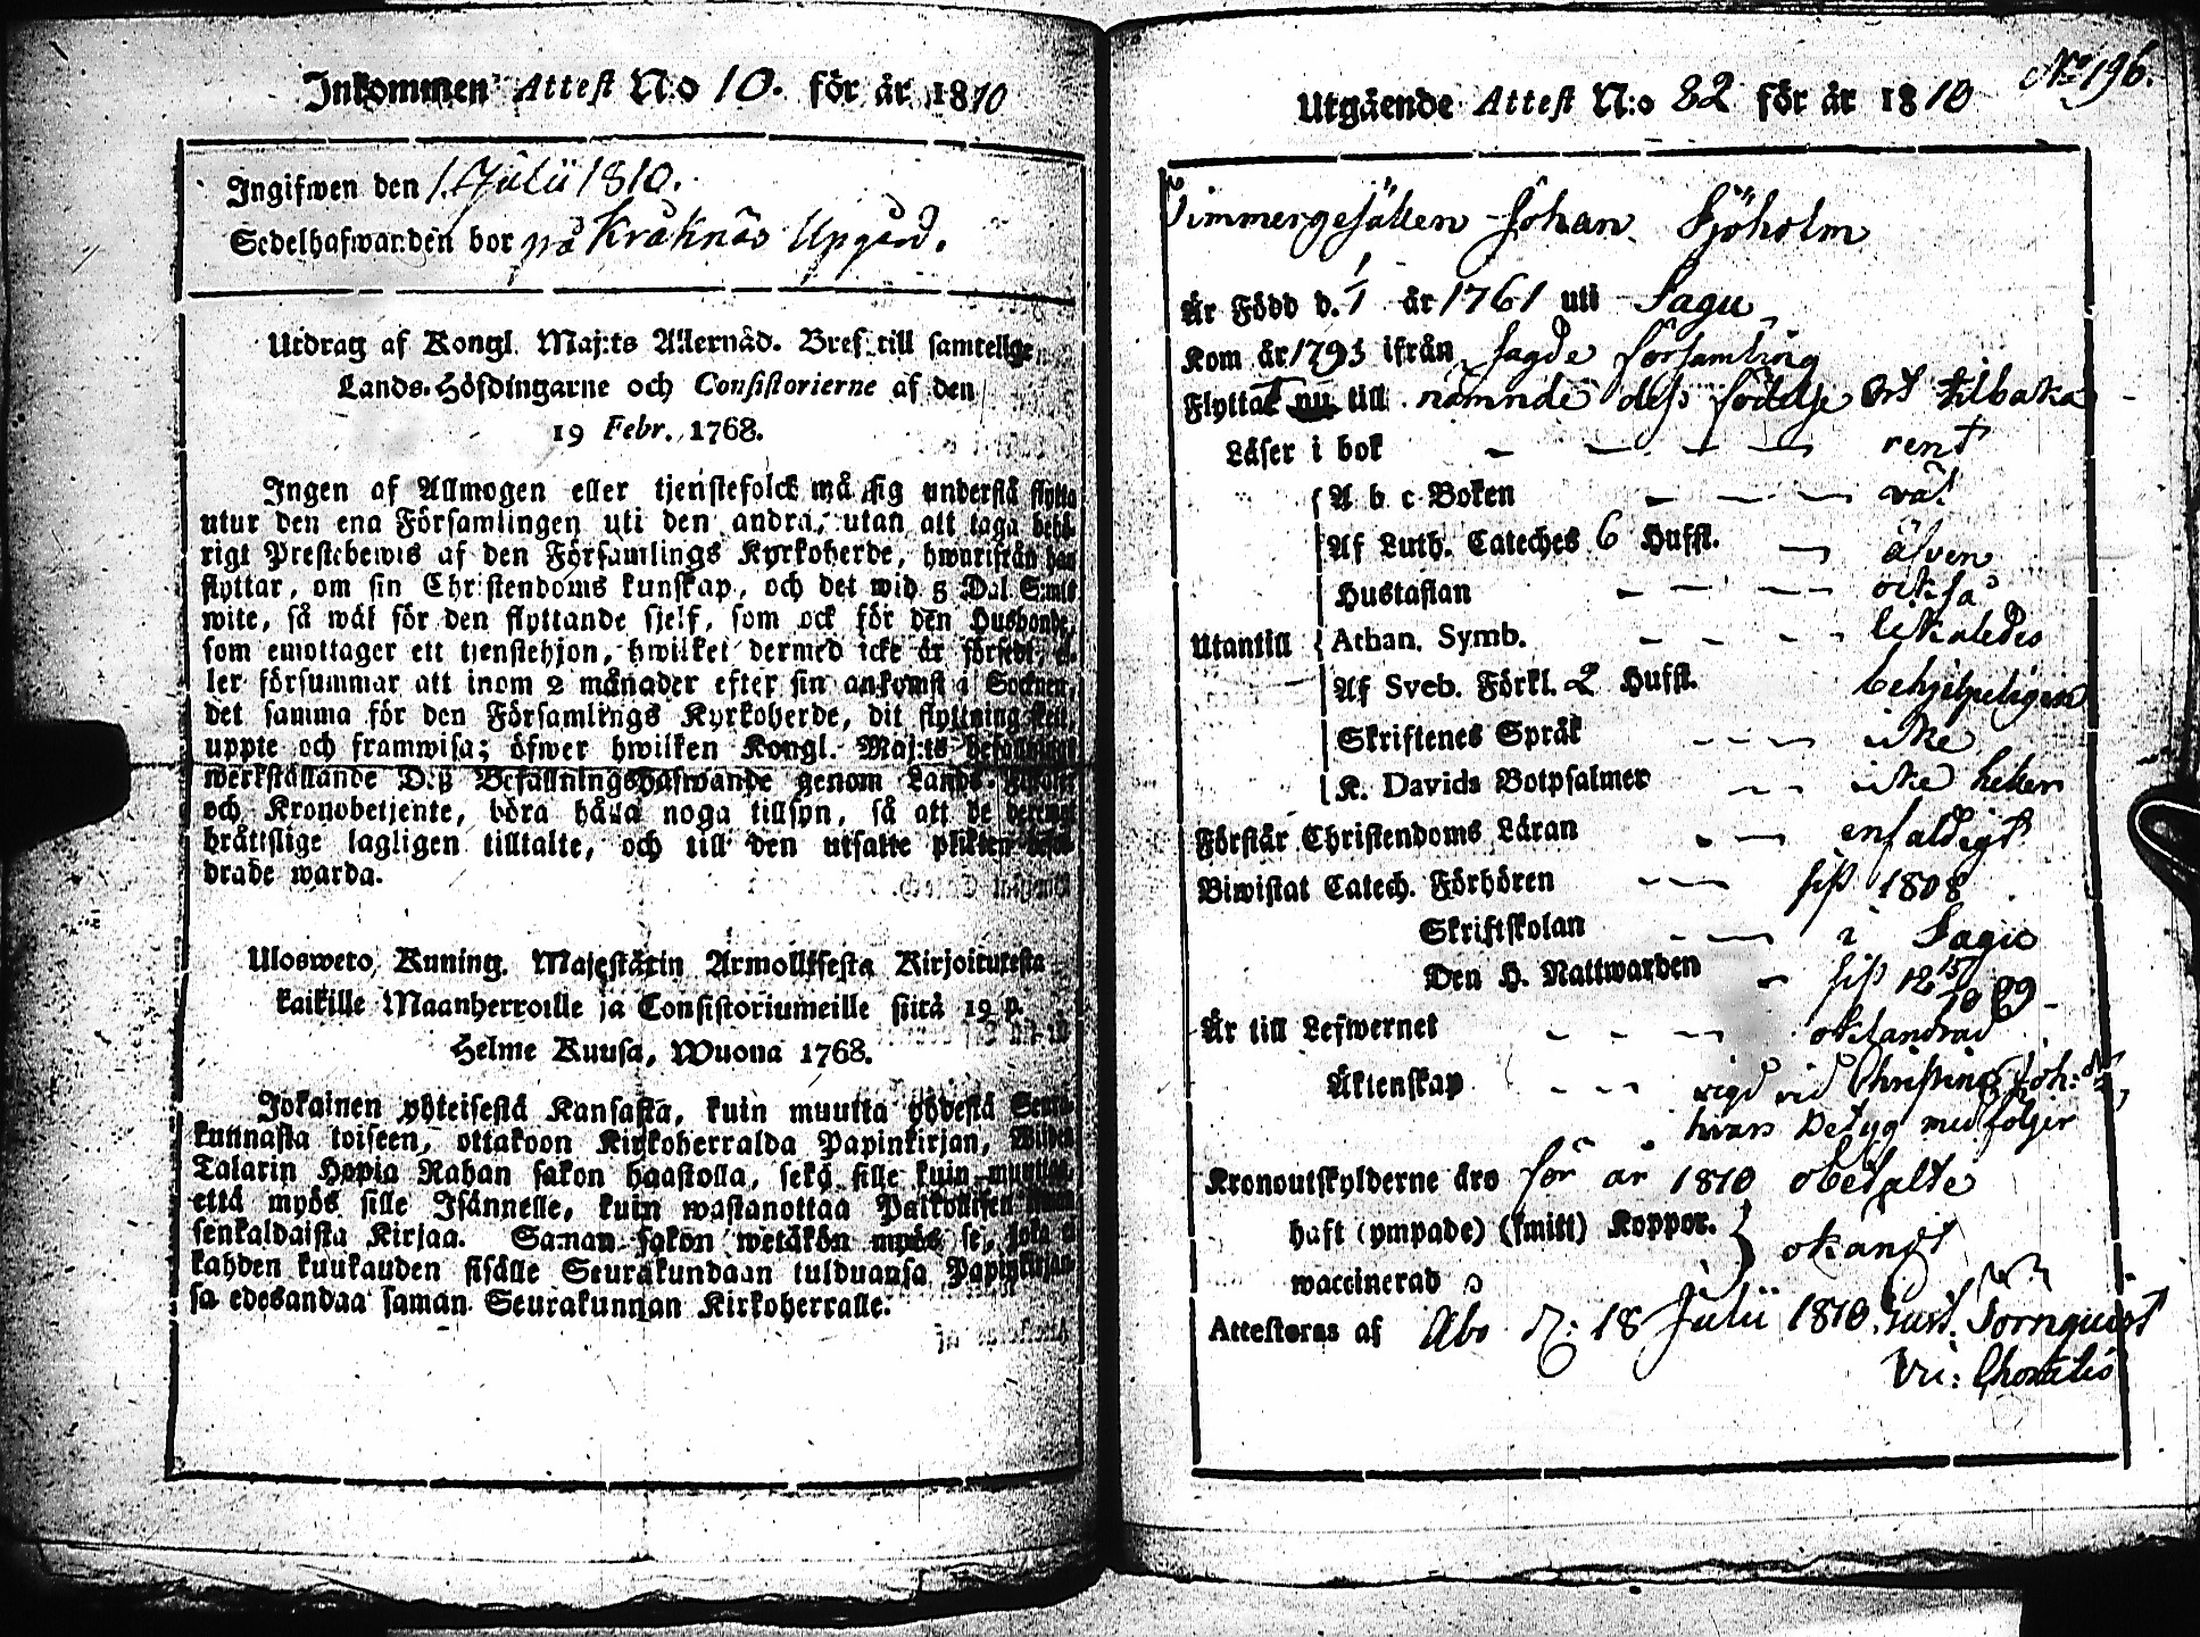 Inkommen Attest N:o 10. för år 1810
Ingifwen den 1. Julii 1810.
Sedelhafwanden bor på Kråknäs Uppgård.
Utdrag af Kongl. Maj:ts Allernåd. Bref till samtellge
Lands-Höfdingarne och Consistorierne af den
19 Febr. 1768.
Ingen af Allmogen eller tjenstefolck må sig understå flytta
utur den ena Församlingen uti den andra, utan att taga behö-
rigt Prestebewis af den Församlings Kyrkoherde, hwarifrån han
flyttar, om sin Christendoms kunskap, och det wid 5 Dal. S:mts
wite, så wäl för den flyttande sjelf, som ock för den Husbonde,
som emottager ett tjenstehjon, hwilket dermed icke är försedt, el-
ler försummar att inom 2 månader efter sin ankomst i Socknen,
det samma för den Församlings Kyrkoherde, dit flyttning skett,
uppte och framwisa; öfwer hwilken Kongl. Maj:ts befallnings
werkställande Deß Befallningshafwande genom Lands-
och Kronobetjente, böra hålla noga tillsyn, så att de deremot
bråttslige lagligen tilltalte, och till den utsatte plikten befor-
drade warda.
Ulosweto, Kuning. Majestätin Armollisesta Kirjoituresta
kaikille Maanherroille ja Consistoriumeille siitä 19 p.
Helme Kuusa, Wuona 1768.
Jokainen yhteisestä Kansasta, kuin muutta yhdestä Seura-
kunnasta toiseen, ottakoon Kirkoherralda Papinkirjan, Wiiden
Talarin Hopia Rahan sakon haastolla, sekä sille kuin muuttaa,
että myös sille Isännelle, kuin wastanottaa Palkollisen ilman
senkaldaista Kirjaa. Saman sakon wetäkön myös se, joka ei
kahden kuukauden sisälle Seurakundaan tulduansa Papinkirjaan-
sa edesandaa saman Seurakunnan Kirkoherralle.
No 196.
Utgående Attest N:o 82 för år 1810
Timmergesällen Johan Sjöholm
Är Född d. 1/1 år 1761 uti Sagu
Kom år 1793 ifrån sagde församling
Flyttat nu till nämnde dess födelse Ort tilbaka
Läser i bok rent
A b c Boken väl
Af Luth. Cateches 6 Hufst. äfven
Hustaflan också
Utantill Athan. Symb. likaledes
Af Sveb. Förkl. 2 Hufst. behjelpeligen
Skriftenes Språk icke
K. Davids Botpsalmer icke heller
Förstår Christendoms Läran enfaldigt
Biwistat Catech. Förhören sist 1808
Skriftskolan i Sagu
Den H. Nattwarden sist
Är till Lefwernet oklandrad
Äktenskap vigd vid Christina Joh: dr,
hvars Betyg medfölger
Kronoutskylderne äro för år 1810 obetalte
haft (ympade) (smitt) Koppor.
waccinerad okändt
Attesteras af Åbo d: 18 Julii 1810. Gust. Törnquist